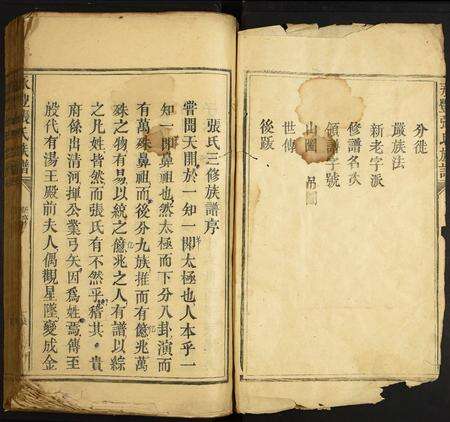 外徙
嚴族法
新老字派
修譜名次
領譜字號
山圖
世傳
後跋
張氏三修族譜序
嘗聞天開於一知一開太極也人本乎一
知一開鼻祖也然太極而下分八卦演而
有萬殊鼻祖而後分九族推而有億兆萬
殊之物有易以統之億兆之人有譜以綜
之凡姓皆然而張氏有不然乎稽其貴
府係出清河揮公業弓矢因爲姓焉傳至
殷代有湯王殿前夫人偶觀星墜變成金
張氏族譜